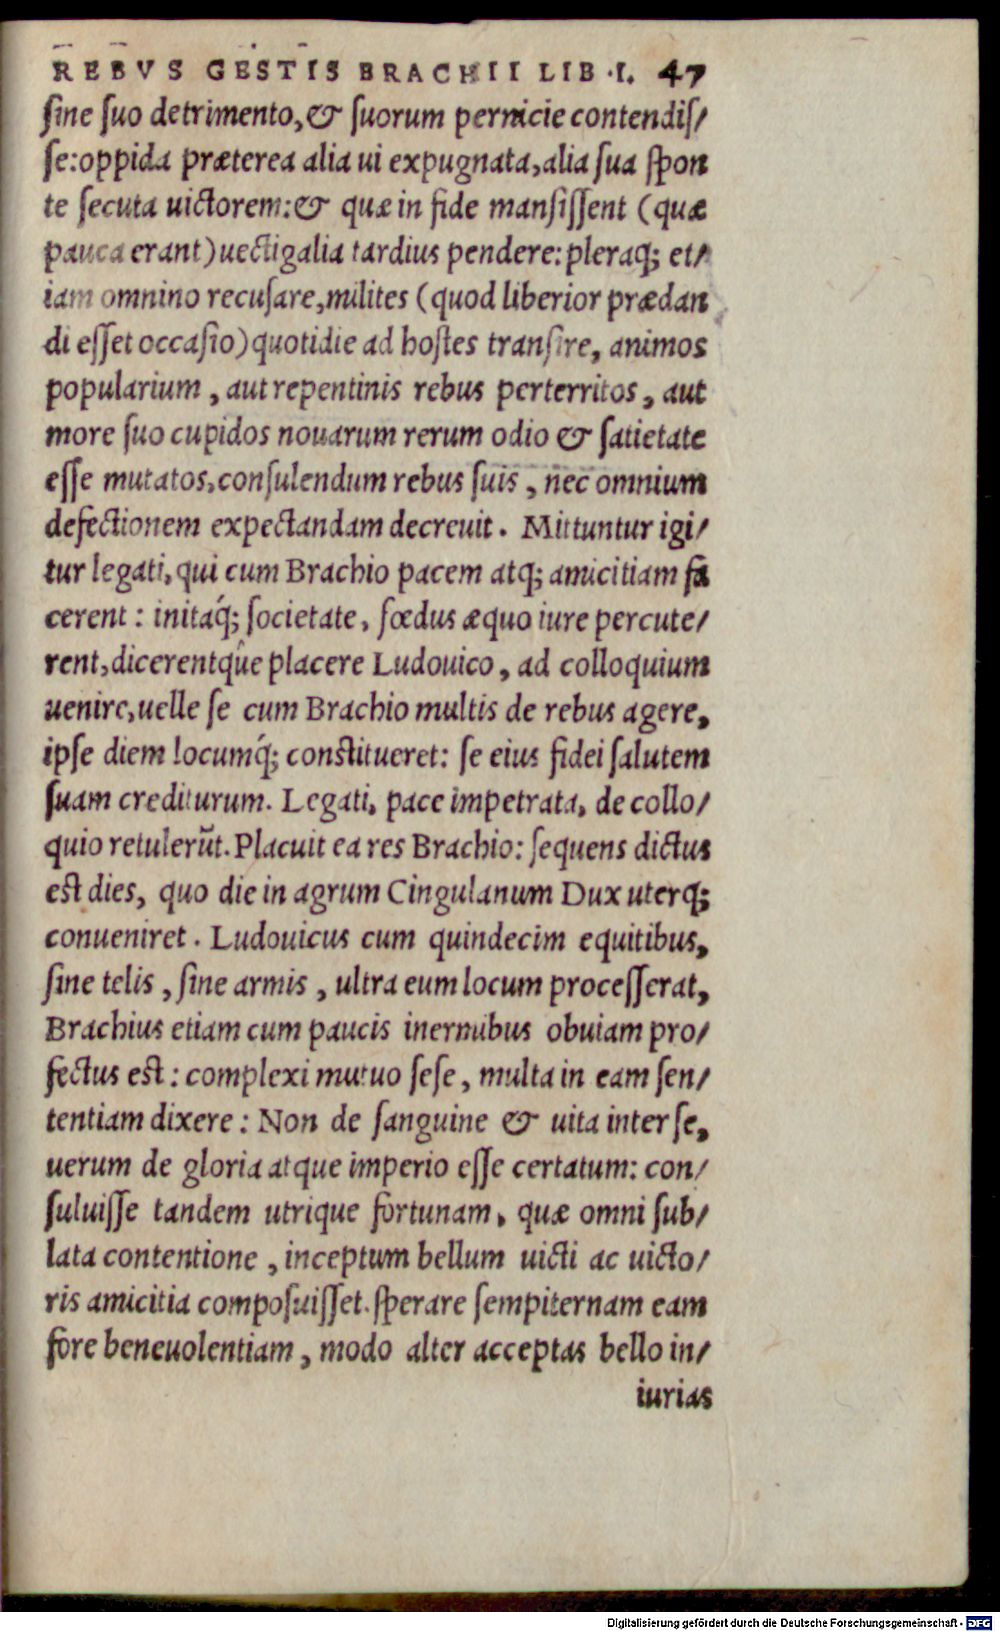 REBVS GESTIS BRACHII LIB·I. 47
ſine ſuo detrimento,& ſuorum pernicie contendiſ/
ſe:oppida præterea alia ui expugnata,alia ſua ſpon
te ſecuta uictorem:& quæ in fide manſiſſent (quæ
pauca erant)uectigalia tardius pendere:pleraq; et/
iam omnino recuſare,milites (quod liberior prædan
di eſſet occaſio)quotidie ad hoſtes tranſire, animos
popularium , aut repentinis rebus perterritos , aut
more ſuo cupidos nouarum rerum odio & ſatietate
eſſe mutatos,conſulendum rebus ſuis , nec omnium
defectionem expectandam decreuit . Mittuntur igi/
tur legati, qui cum Brachio pacem atq; amicitiam fa
cerent : initaq́; ſocietate, fœdus æquo iure percute/
rent,dicerentq́ue placere Ludouico , ad colloquium
uenire,uelle ſe cum Brachio multis de rebus agere,
ipſe diem locumq́; conſtitueret: ſe eius fidei ſalutem
ſuam crediturum. Legati, pace impetrata, de collo/
quio retulerūt. Placuit ea res Brachio: ſequens dictus
eſt dies, quo die in agrum Cingulanum Dux uterq;
conueniret . Ludouicus cum quindecim equitibus,
ſine telis , ſine armis , ultra eum locum proceſſerat,
Brachius etiam cum paucis inermibus obuiam pro/
fectus eſt : complexi mutuo ſeſe , multa in eam ſen/
tentiam dixere : Non de ſanguine & uita inter ſe,
uerum de gloria atque imperio eſſe certatum: con/
ſuluiſſe tandem utrique fortunam, quæ omni ſub/
lata contentione , inceptum bellum uicti ac uicto/
ris amicitia compoſuiſſet. ſperare ſempiternam eam
fore beneuolentiam , modo alter acceptas bello in/
iurias
Digitalisierung gefördert durch die Deutsche Forschungsgemeinschaft - DFG